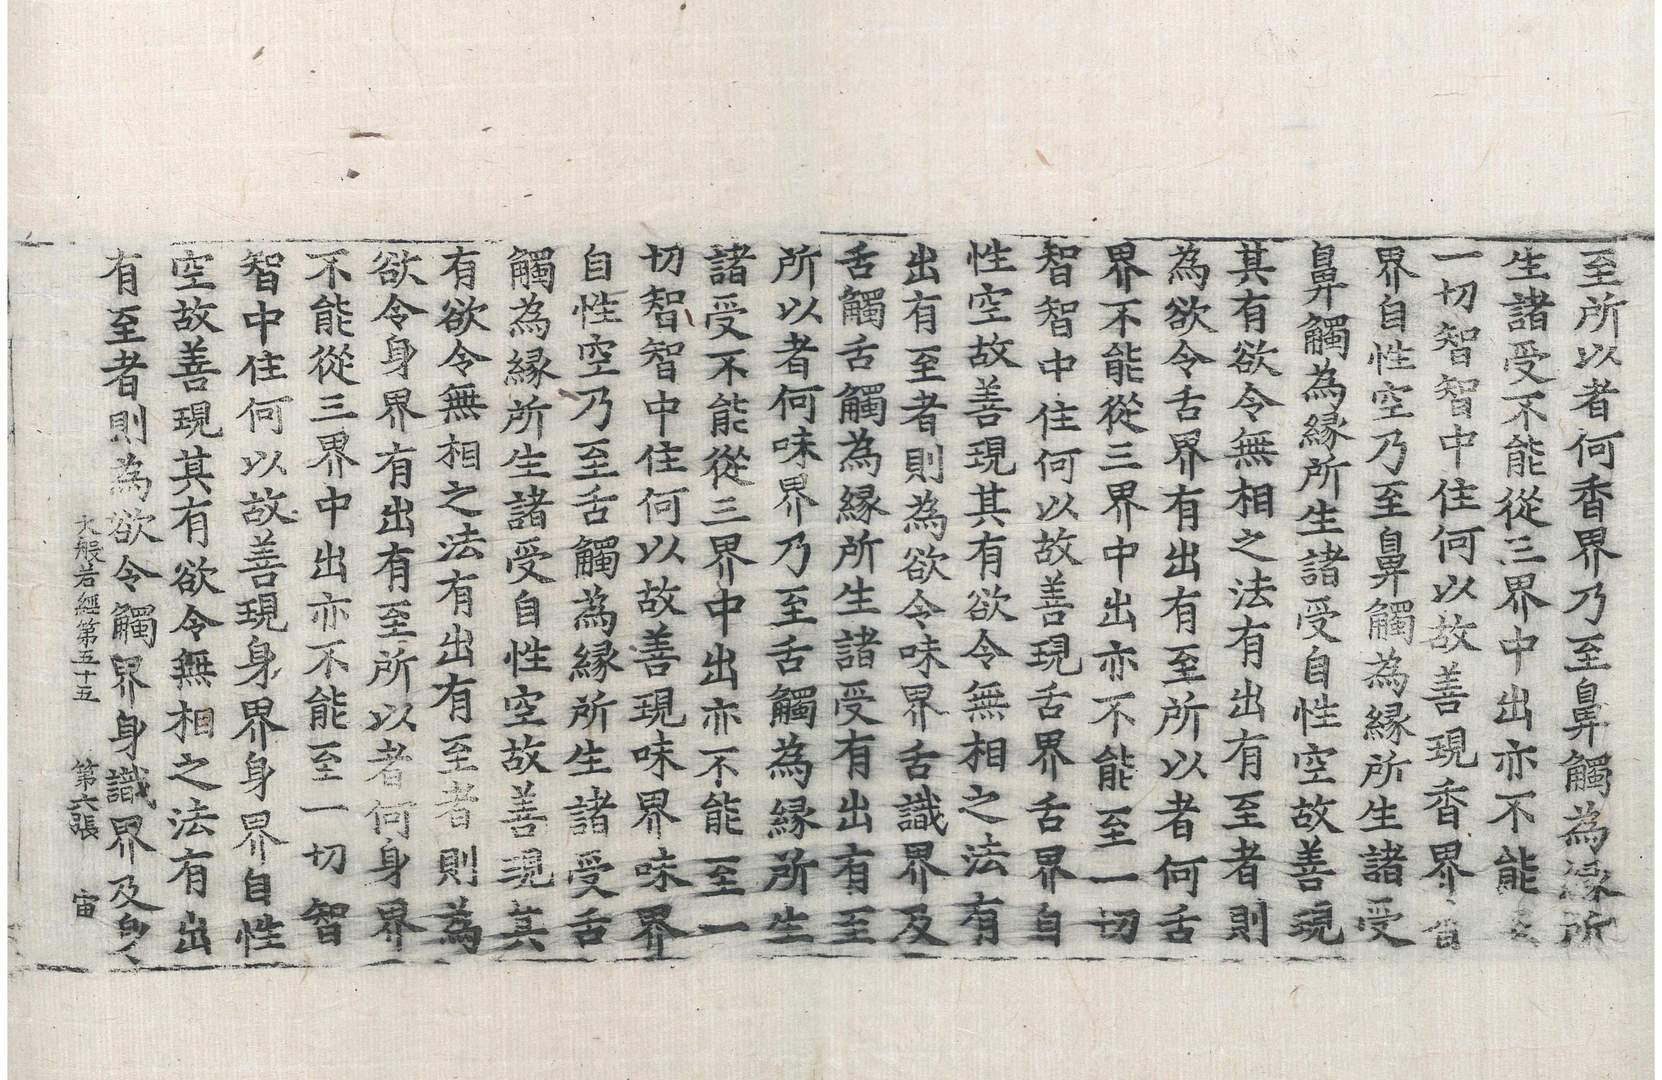 至所以者何香界乃至鼻觸為縁所
生諸受不能從三界中出亦不能至
一切智智中住何以故善現香界香
界自性空乃至鼻觸為縁所生諸受
鼻觸為縁所生諸受自性空故善現
其有欲令無相之法有出有至者則
為欲令舌界有出有至所以者何舌
界不能從三界中出亦不能至一切
智智中住何以故善現舌界舌界自
性空故善現其有欲令無相之法有
出有至者則為欲令味界舌識界及
舌觸舌觸為縁所生諸受有出有至
所以者何味界乃至舌觸為縁所生
諸受不能從三界中出亦不能至一
切智智中住何以故善現味界味界
自性空乃至舌觸為縁所生諸受舌
觸為縁所生諸受自性空故善現其
有欲令無相之法有出有至者則為
欲令身界有出有至所以者何身界
不能從三界中出亦不能至一切智
智中住何以故善現身界身界自性
空故善現其有欲令無相之法有出
有至者則為欲令觸界身識界及身
大般若經第五十五 第六張 宙